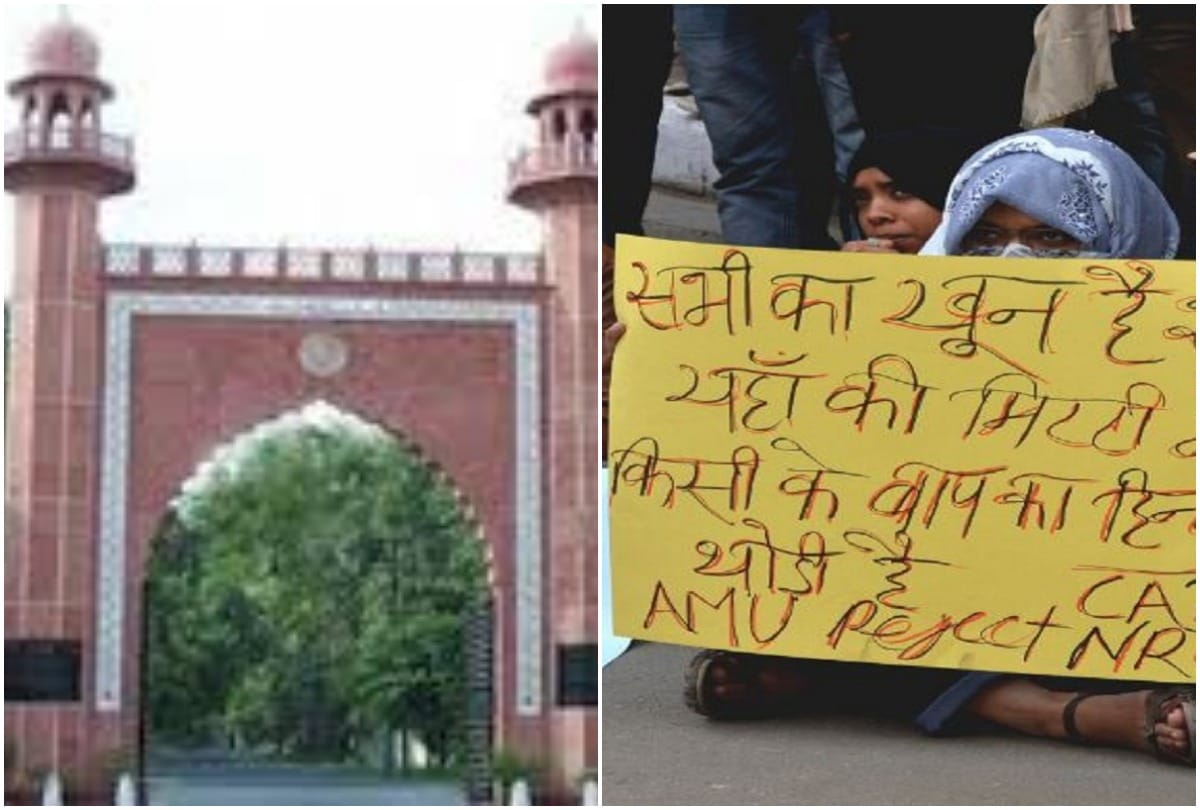 सभी का खून है
यहाँ की मिटटी
किसी के बाप का
थोडी है
AMU Reject